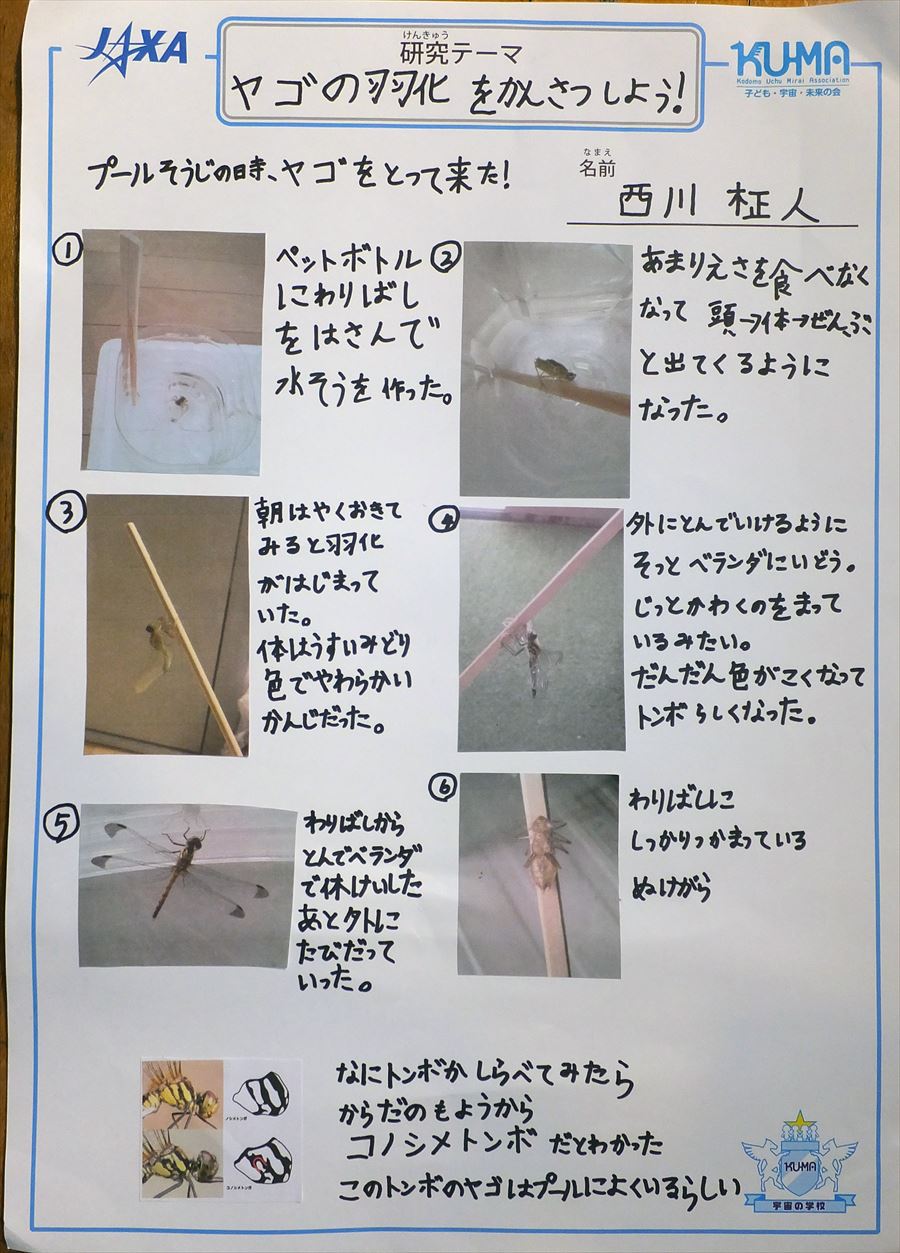 JAXA
けんきゅう
研究テーマ
ヤゴの羽化をかんさつしよう!
KU-MA
Kodomo Uchu Mirai Association
子ども・宇宙・未来の会
プールそうじの時、ヤゴをとって来た!
なまえ
名前
西川 柾人
①
ペットボトル
にわりばし
をはさんで
水そうを作った。
②
あまりえさを食べなく
なって 頭→体→ぜんぶ
と出てくるように
なった。
③
朝はやくおきて
みると羽化
がはじまって
いた。
体はうすいみどり
色でやわらかい
かんじだった。
④
外にとんでいけるように
そっとベランダにいどう。
じっとかわくのをまって
いるみたい。
だんだん色がこくなって
トンボらしくなった。
⑤
わりばしから
とんでベランダ
で休けいした
あと外に
たびだって
いった。
⑥
わりばしに
しっかりつかまっている
ぬけがら
ノシメトンボ
コノシメトンボ
なにトンボかしらべてみたら
からだのもようから
コノシメトンボだとわかった
このトンボのヤゴはプールによくいるらしい
KU-MA
宇宙の学校